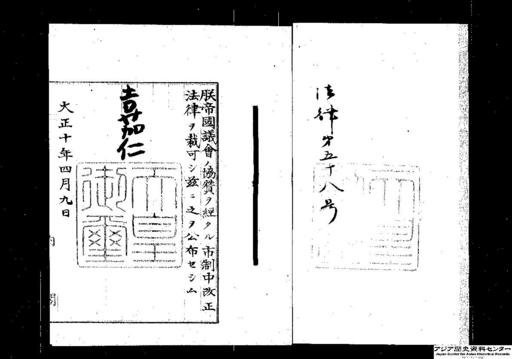 法律第五十八号
朕帝國議會ノ協賛ヲ經タル市制中改正
法律ヲ裁可シ玆ニ之ヲ公布セシム
嘉仁
天皇御璽
大正十年四月九日
内
閣
アジア歴史資料センター
Japan Center for Asian Historical Records